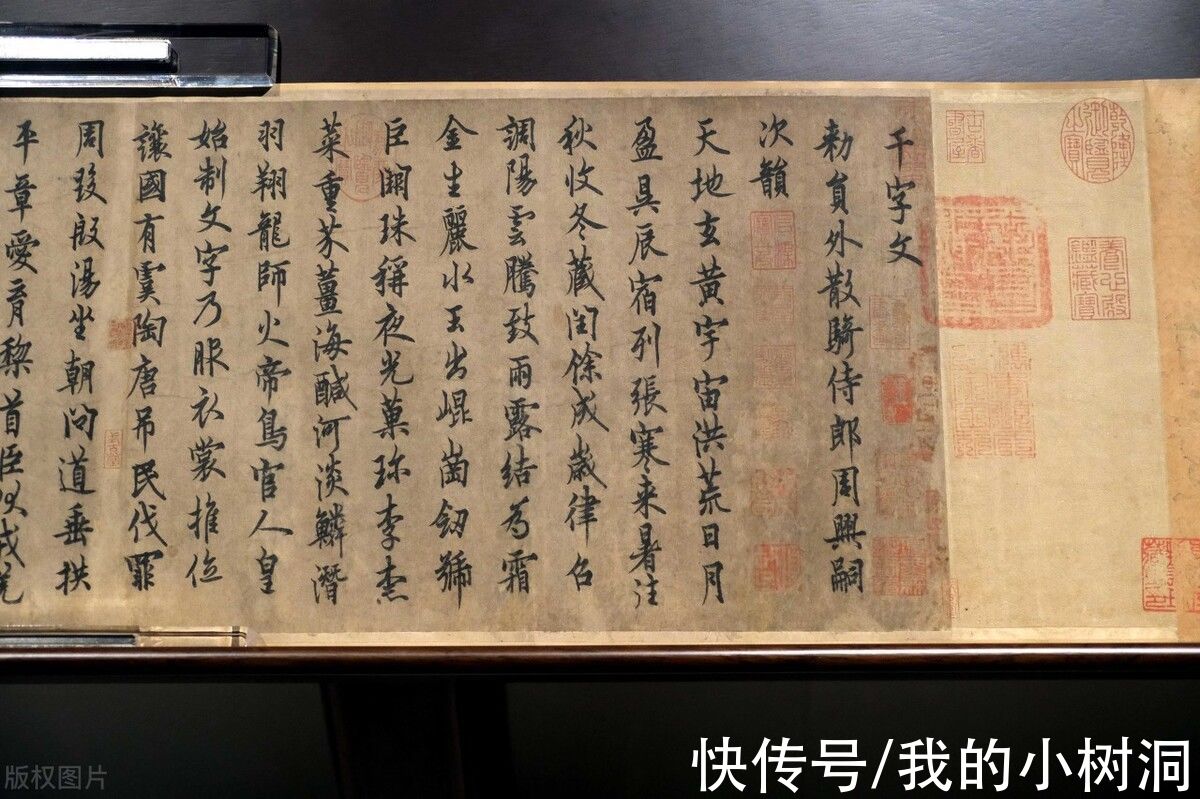 乾隆御覽之寶
養心殿鑑藏寶
千字文
勑員外散騎侍郎周興嗣
次韻
天地玄黃宇宙洪荒日月
盈昃辰宿列張寒来暑往
秋收冬藏閏餘成歲律召
調陽雲騰致雨露結為霜
金生麗水玉出崐崗劒號
巨闕珠稱夜光菓珎李柰
菜重芥薑海醎河淡鱗潛
羽翔龍師火帝鳥官人皇
始制文字乃服衣裳推位
讓國有虞陶唐吊民伐罪
周發殷湯坐朝問道垂拱
平章愛育黎首臣伏戎羌
版权图片
快传号/我的小树洞